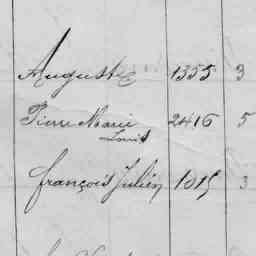 Auguste 1355 3
Pierre Marie 2416 5
Louis
françois Julien 1015 3